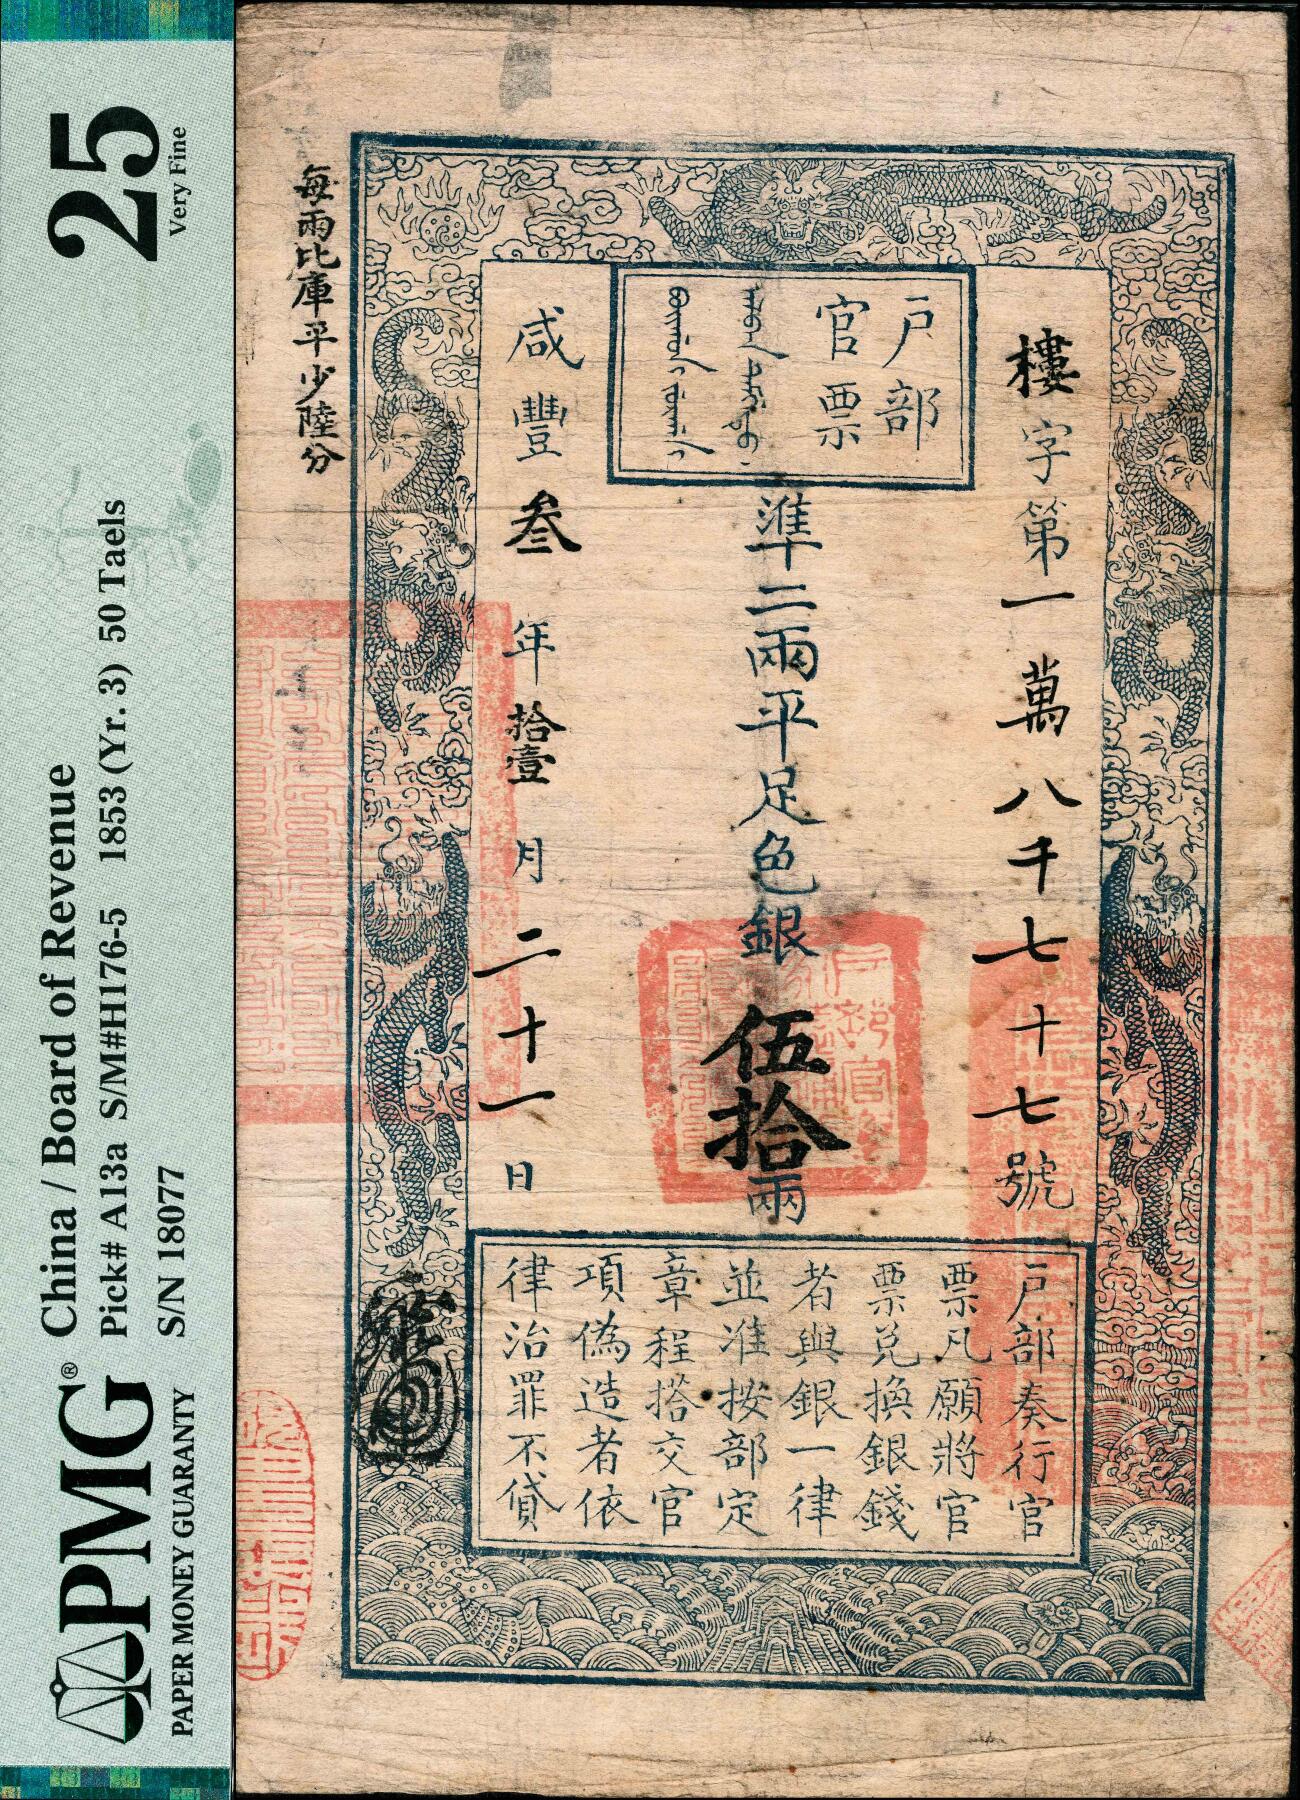 PMG®
PAPER MONEY GUARANTY
China / Board of Revenue
Pick# A13a S/M#H176-5 1853 (Yr. 3) 50 Taels
S/N 18077
25
Very Fine
戶部
官票
樓字第一萬八千七十七號
準二兩平足色銀伍拾兩
咸豐叁年拾壹月二十一日
每兩比庫平少陸分
戶部奏行官
票凡願將官
票兌換銀錢
者與銀一律
並准按部定
章程搭交官
項偽造者依
律治罪不貸